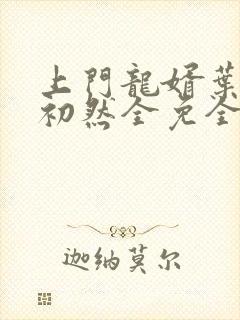 上門龍婿葉
初然全免全
迦纳莫尔